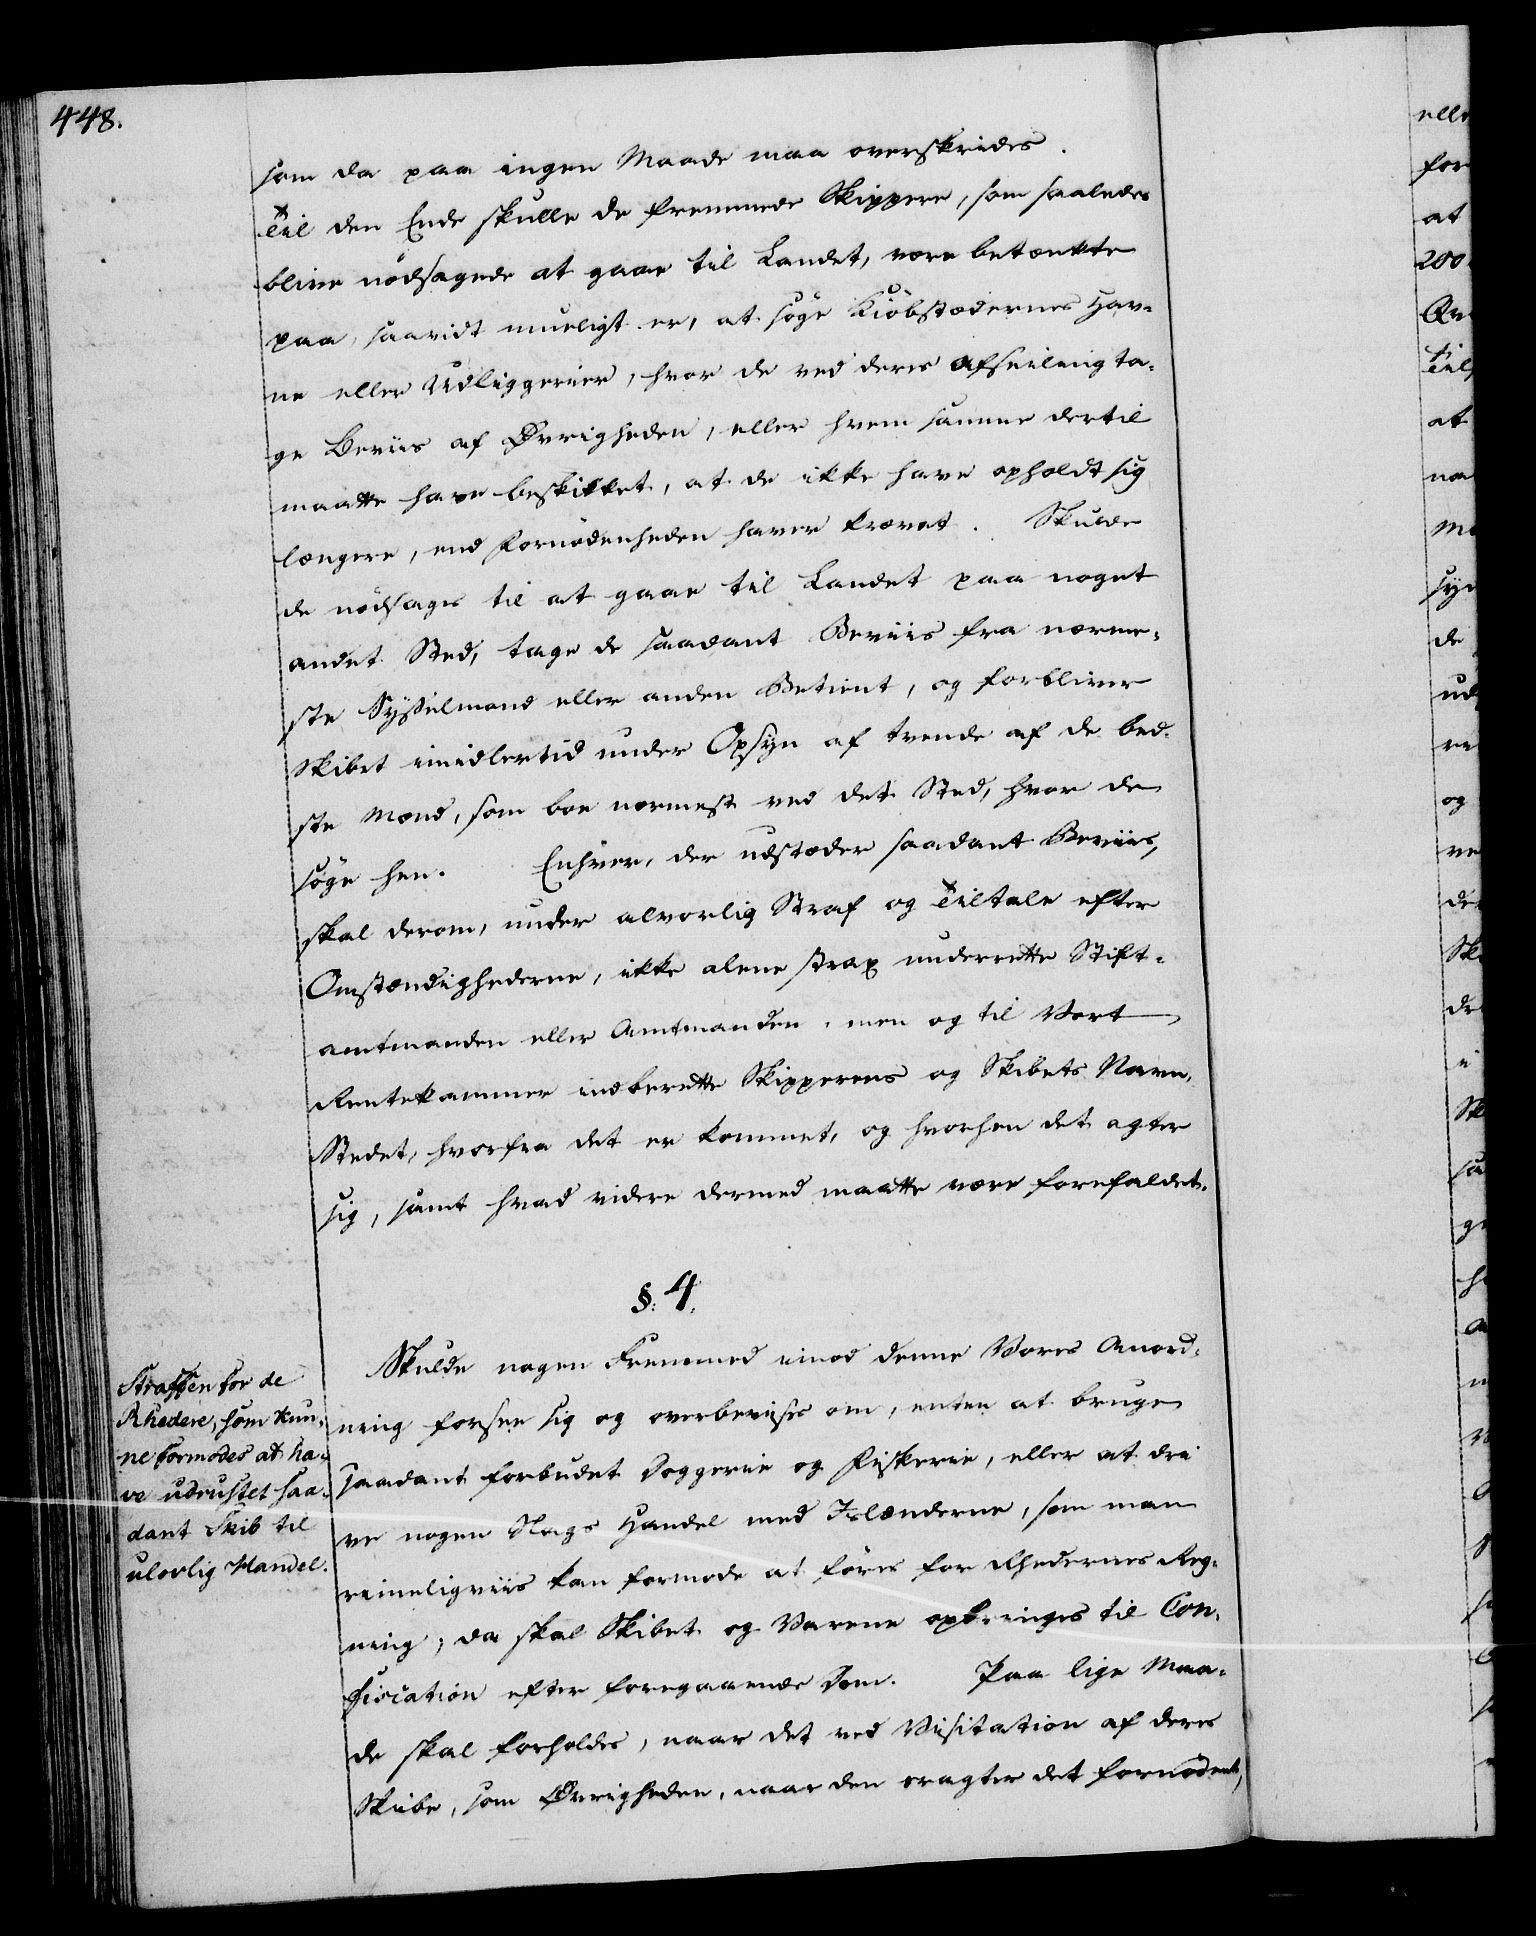 448.
som da paa ingen Maade maa overskrides.
Til den Ende skulle de fremmede Skippere, som saaledes
blive nødsagede at gaae til Landet, være betænkte
paa, saavidt mueligt er, at søge Kiøbstædernes Hav-
ne eller Udliggerier, hvor de ved deres Afseiling ta-
ge Beviis af Øvrigheden, eller hvem samme dertil
maatte have beskikket, at de ikke have opholdt sig
længere, end Fornødenheden haver krævet. Skulde
de nødsages til at gaae til Landet paa noget
andet Sted, tage de saadant Beviis fra nærme-
ste Sysselmand eller anden Betient, og forbliver
Skibet imidlertid under Opsyn af tvende af de bed-
ste Mænd, som boe nærmest ved det Sted, hvor de
søge hen. Enhver, der udstæder saadant Beviis,
skal derom, under alvorlig Straf og Tiltale efter
Omstændighederne, ikke alene strax underrette Stift-
amtmanden eller Amtmanden, men og til Vort
Rentekammer indberette Skipperens og Skibets Navn,
Stedet, hvorfra det er kommet, og hvorhen det agter
sig, samt hvad videre dermed maatte være forefaldet.
§. 4.
Straffen for de
Rhedere, som kun-
ne formodes at ha-
ve udrustet saa-
dant Skib til
ulovlig Handel.
Skulde nogen Fremmed imod denne Vores Anord-
ning forsee sig og overbevises om, enten at bruge
saadant forbudet Doggerie og Fiskerie, eller at dri
ve nogen Slags Handel med Islænderne, som man
rimeligviis kan formode at føres for Rhedernes Reg-
ning, da skal Skibet og Varene opbringes til Con-
fiscation efter foregaaende Dom. Paa lige Maa-
de skal forholdes, naar det ved Visitation af deres
Skibe, som Øvrigheden, naar den eragter det fornødent,